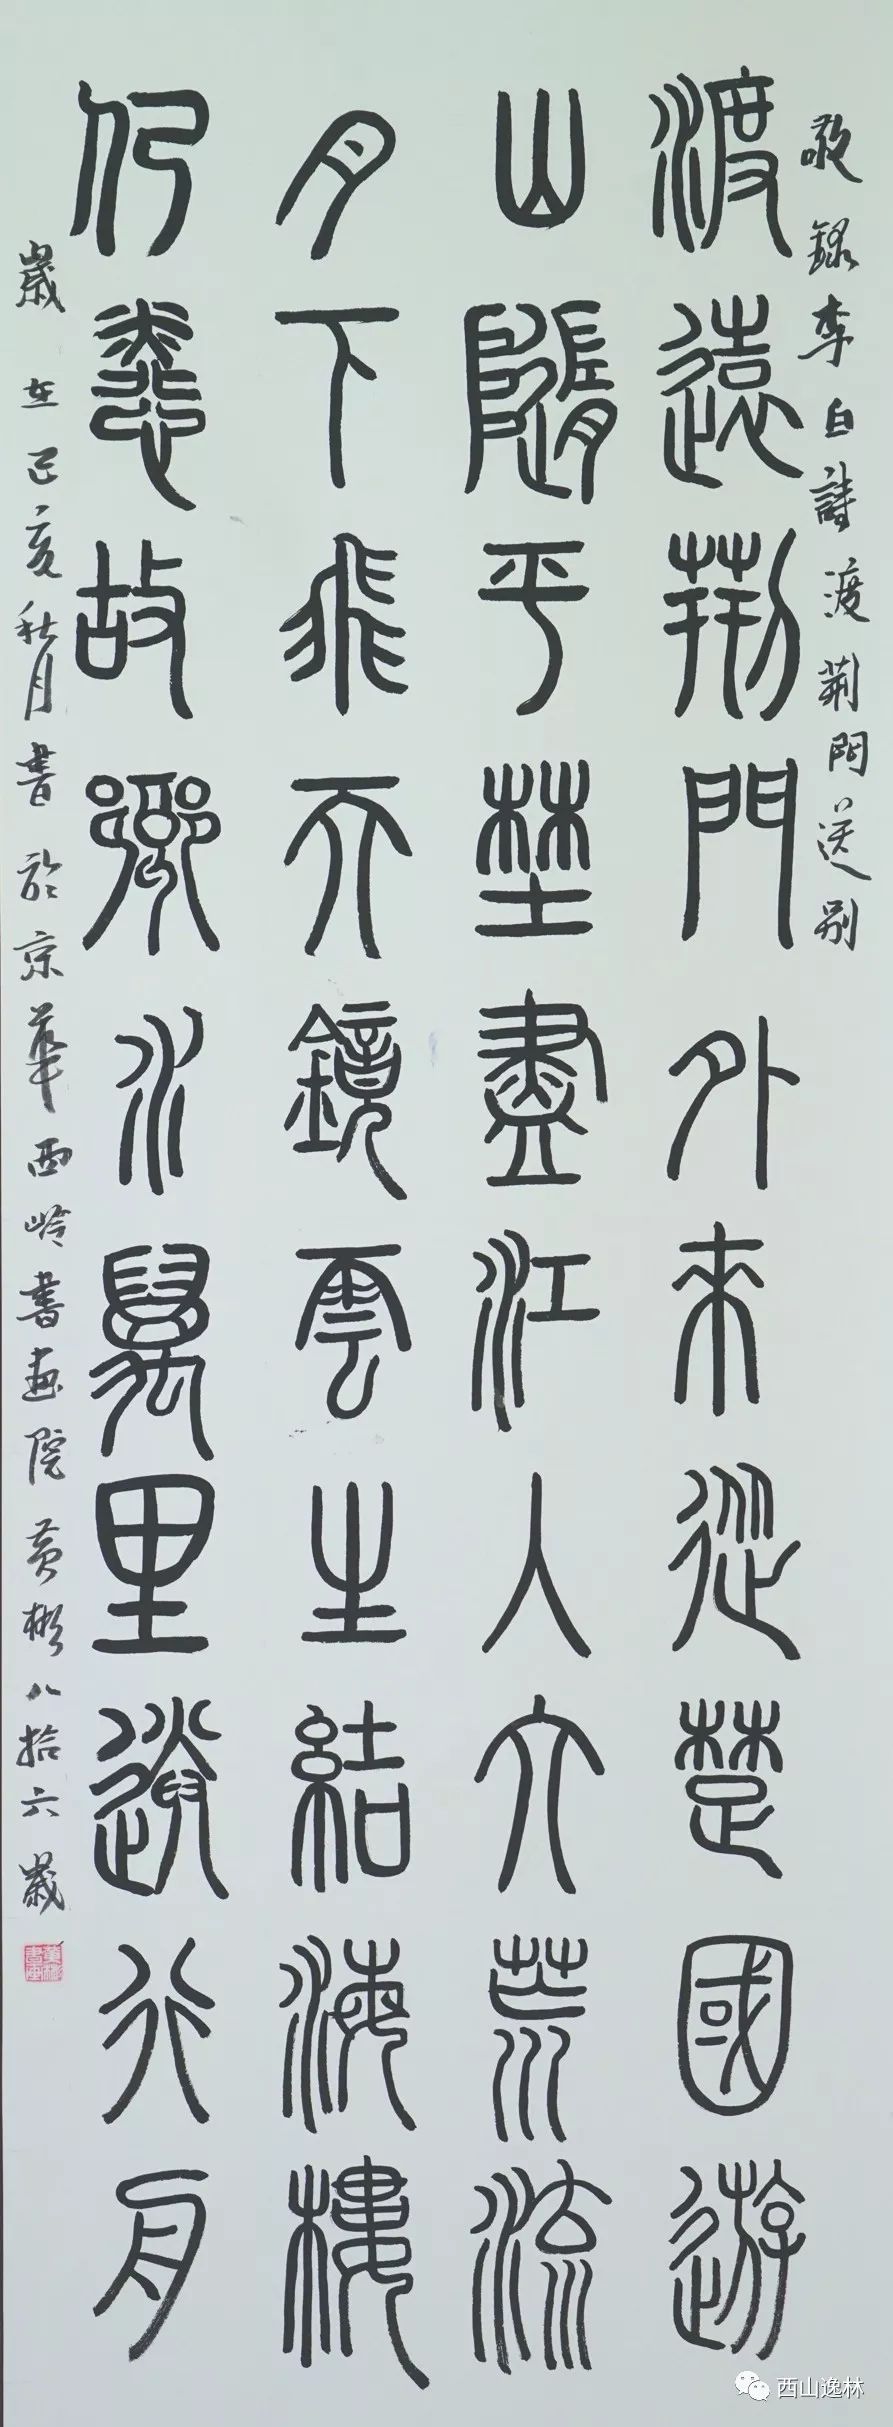 敬錄李白詩渡荆門送别
渡遠荆門外來從楚國遊
山隨平埜盡江入大荒流
月下飛天鏡雲生結海樓
仍憐故鄉水萬里送行舟
歲在己亥秋月書於京華西岭書畫院黄彬八拾六歲
西山逸林